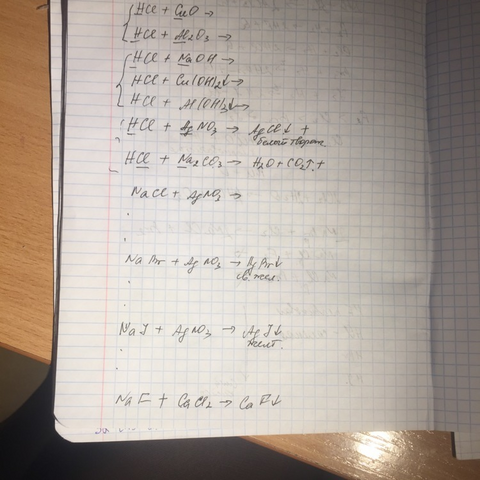 HCl + CuO →
HCl + Al2O3 →
HCl + NaOH →
HCl + Cu(OH)2↓ →
HCl + Al(OH)3↓ →
HCl + AgNO3 → AgCl↓ +
белый творож
HCl + Na2CO3 → H2O + CO2↑ +
NaCl + AgNO3 →
NaBr + AgNO3 → AgBr↓
св. жел.
NaJ + AgNO3 → AgJ↓
желт.
NaF + CaCl2 → CaF↓